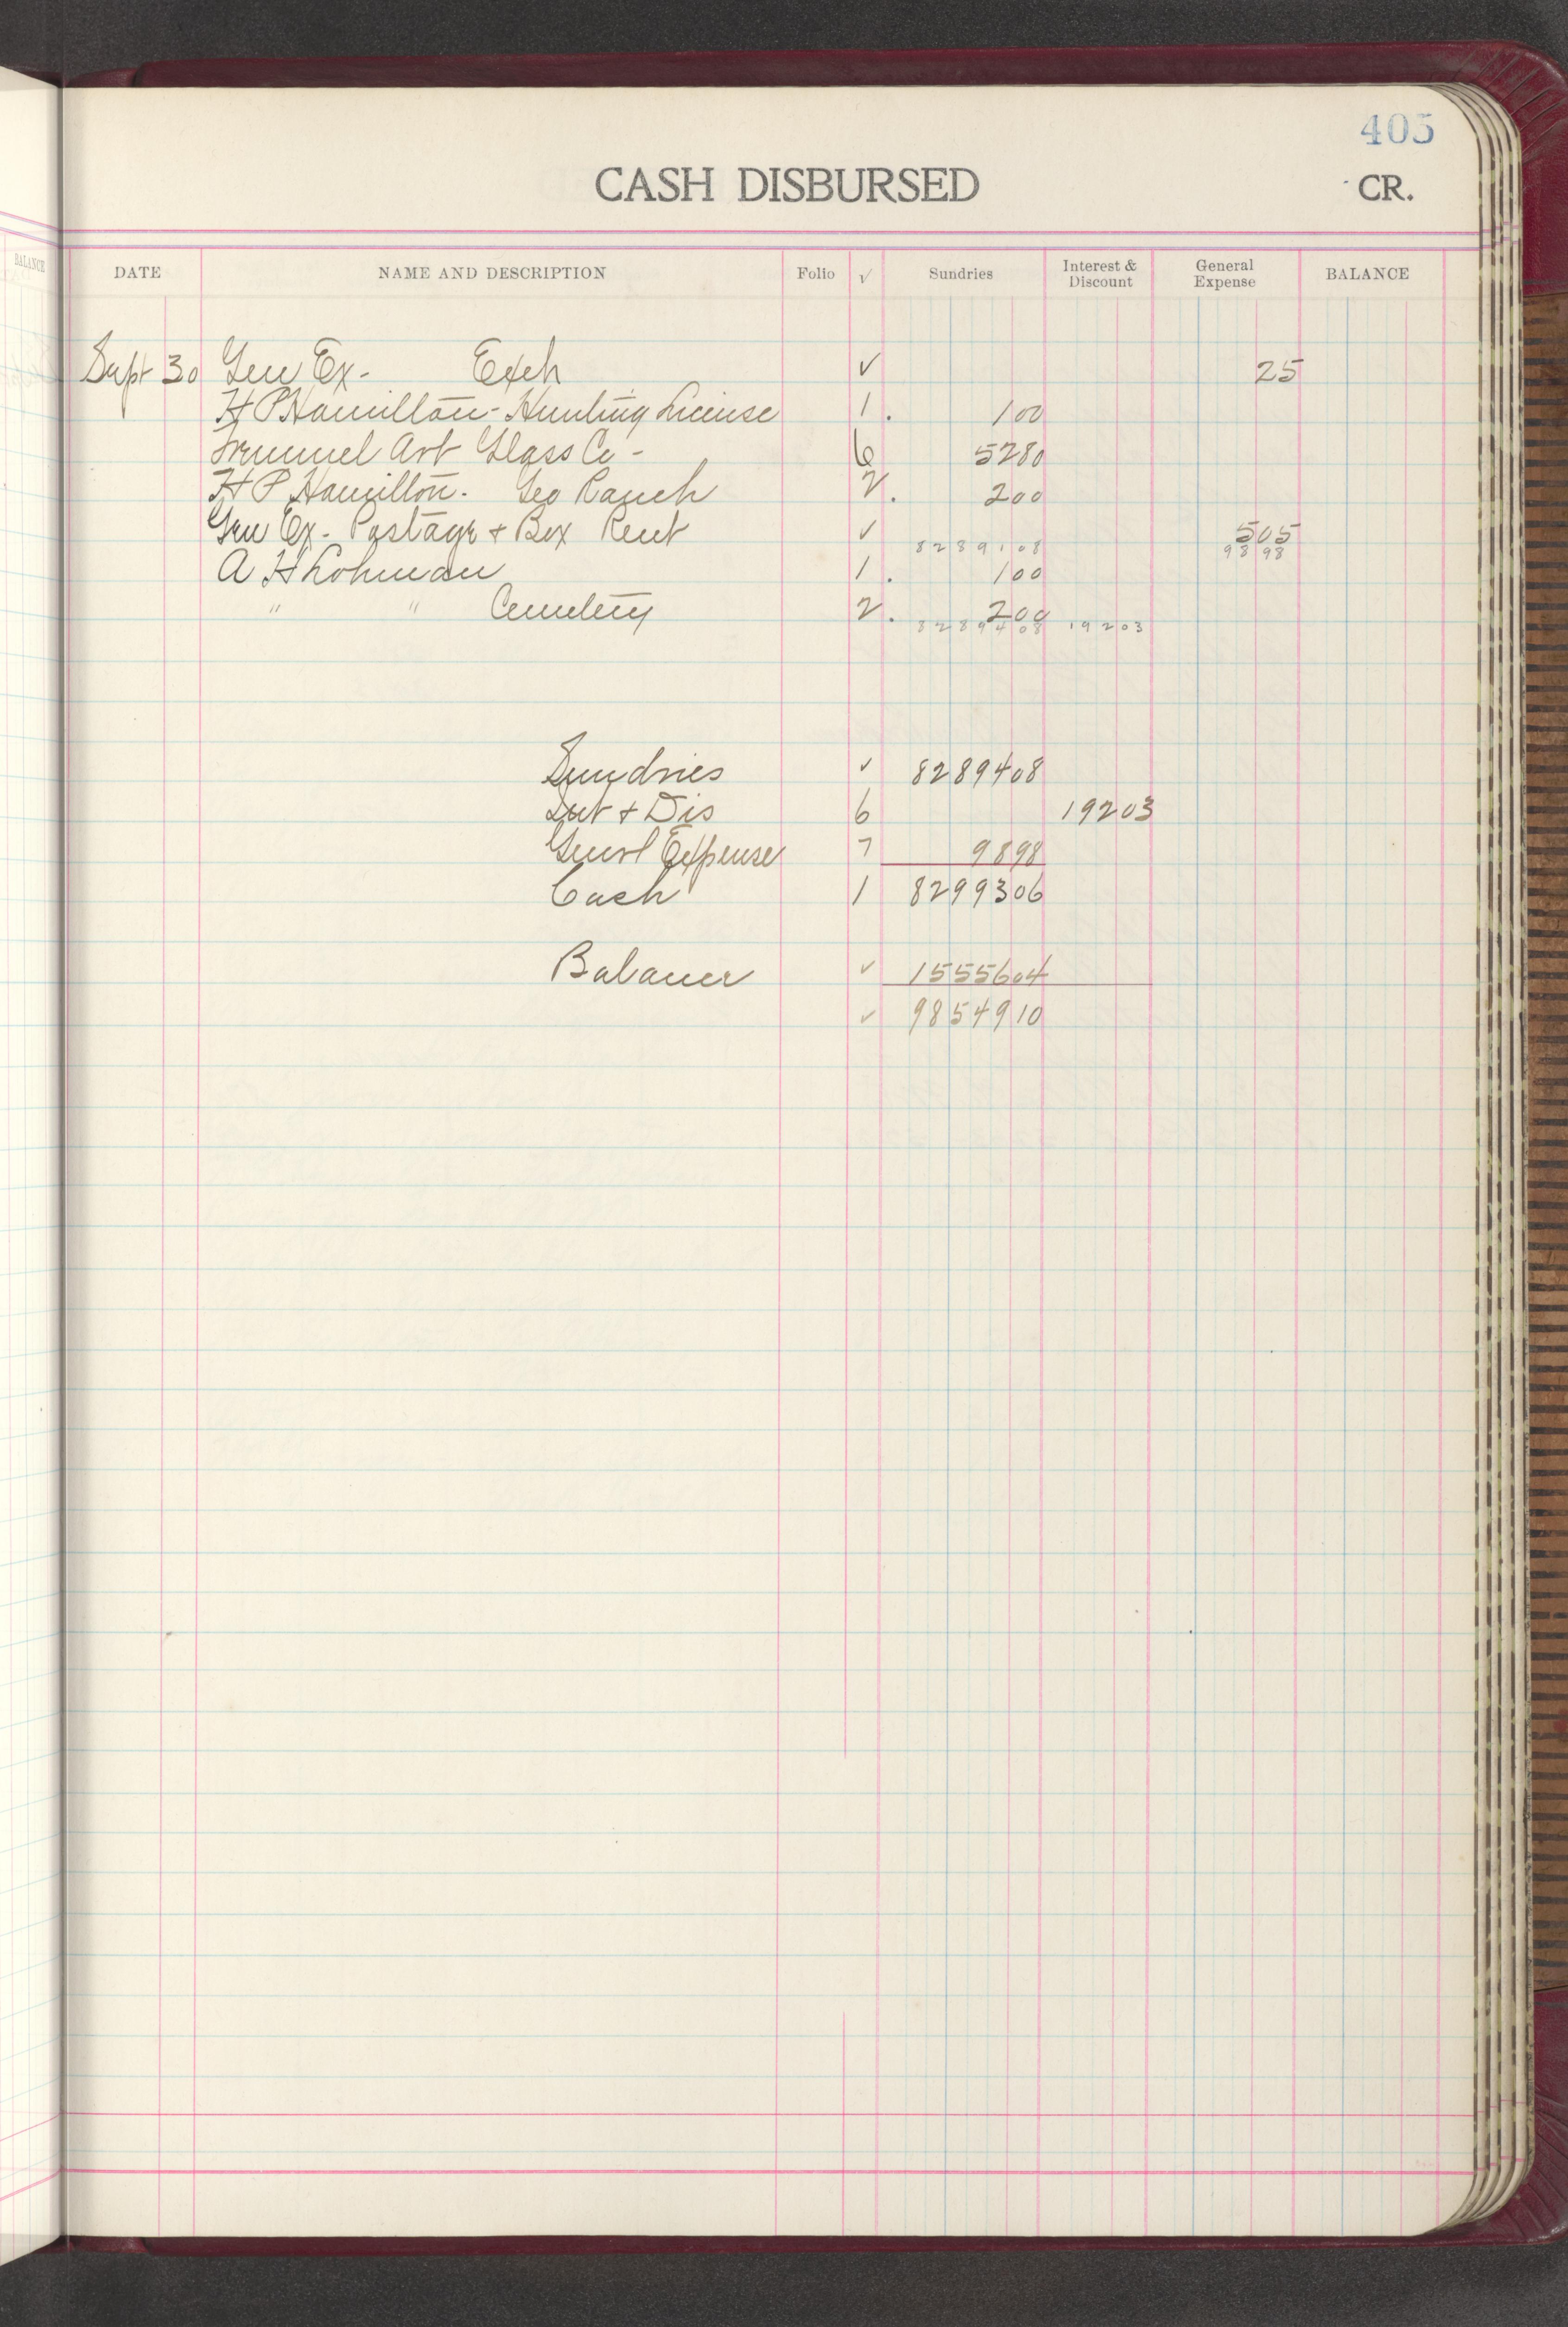 BALANCE
405
CASH DISBURSED
CR.
DATE NAME AND DESCRIPTION Folio √ Sundries Interest & Discount General Expense BALANCE
Sept 30 Gen Ex - Exch ✓ 25
H P Hamilton - Hunting License 1 . 100
Art Glass Co - 6 5280
H P Hamilton . Geo Ranch 2 . 200
Gen Ex - Postage + Box Rent ✓ 505
8289108 9898
A H Lohman 1 . 100
" " Cemetery 2 . 200
8289408 19203
Sundries ✓ 8289408
Int + Dis 6 19203
Genrl Expense 7 9898
Cash 1 8299306
Balance ✓ 1555604
✓ 9854910